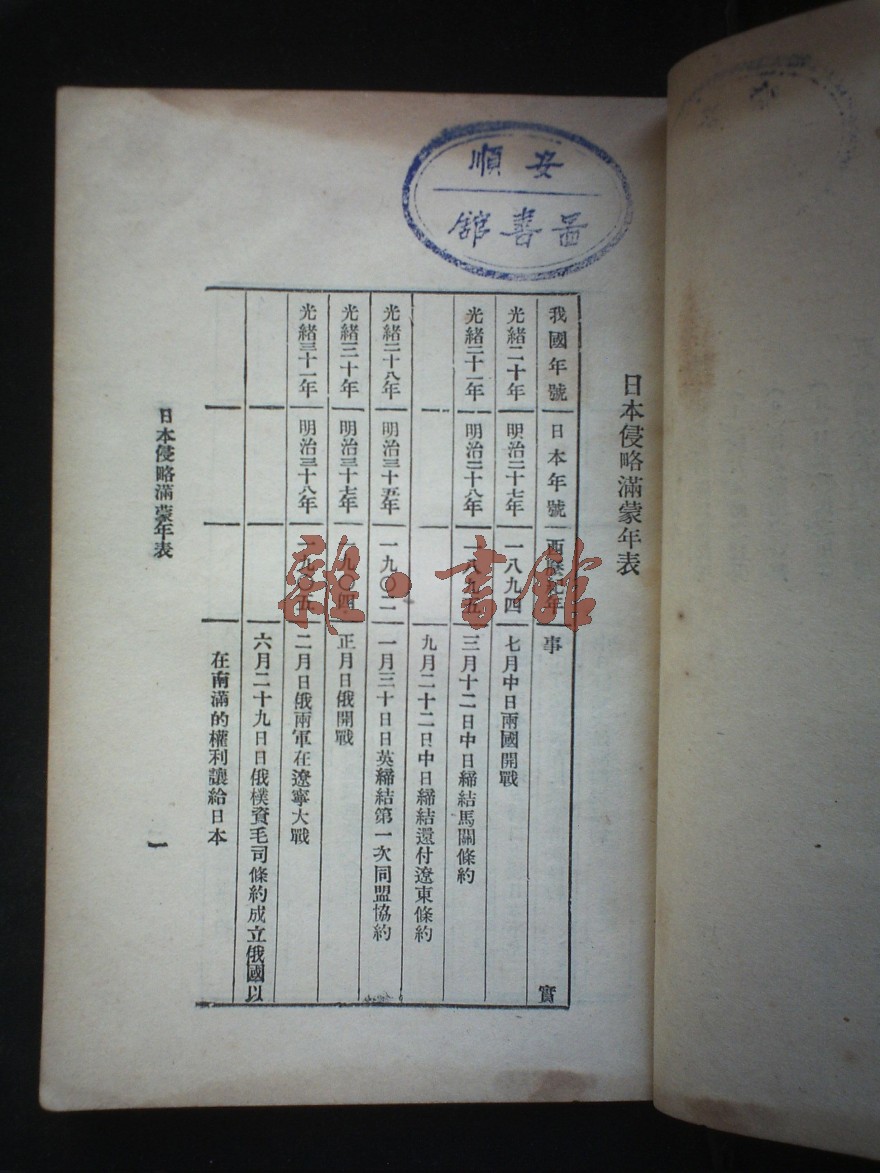 安順
圖書館
日本侵略滿蒙年表
我國年號 日本年號 西曆紀年 事實
光緒二十年 明治二十七年 一八九四 七月中日兩國開戰
光緒二十一年 明治二十八年 一八九五 三月十二日中日締結馬關條約
九月二十二日中日締結還付遼東條約
光緒二十八年 明治三十五年 一九〇二 一月三十日日英締結第一次同盟協約
光緒三十年 明治三十七年 一九〇四 正月日俄開戰
光緒三十一年 明治三十八年 一九〇五 二月日俄兩軍在遼寧大戰
六月二十九日日俄樸資毛司條約成立俄國以
在南滿的權利讓給日本
日本侵略滿蒙年表
一
雜·書館